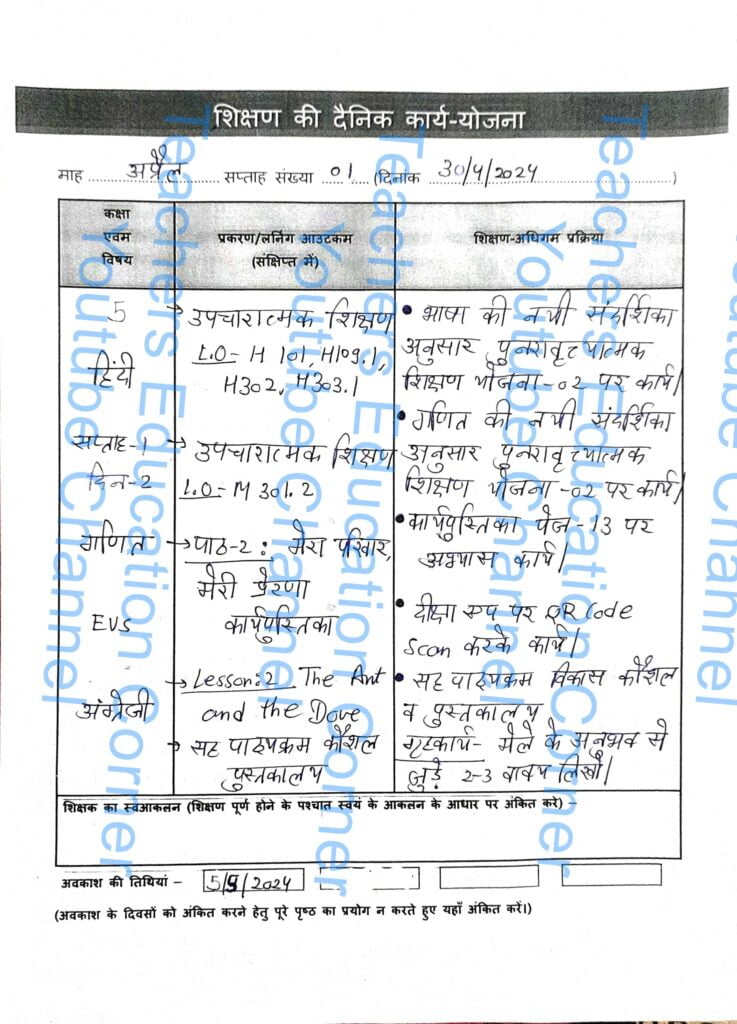 शिक्षण की दैनिक कार्य-योजना
माह अप्रैल सप्ताह संख्या 01 (दिनांक 30/4/2024)
कक्षा एवम विषय
प्रकरण/लर्निंग आउटकम (संक्षिप्त में)
शिक्षण-अधिगम प्रक्रिया
5
हिंदी
सप्ताह-1
दिन-2
गणित
EVS
अंग्रेजी
→ उपचारात्मक शिक्षण
L.O- H 101, H109.1,
H302, H303.1
→ उपचारात्मक शिक्षण
L.O- M 301.2
→ पाठ-2: मेरा परिवार,
मेरी प्रेरणा
कार्यपुस्तिका
→ Lesson:2 The Ant
and the Dove
→ सह पाठ्यक्रम कौशल
पुस्तकालय
• भाषा की नयी संदर्शिका
अनुसार पुनरावृत्यात्मक
शिक्षण योजना-02 पर कार्य।
• गणित की नयी संदर्शिका
अनुसार पुनरावृत्यात्मक
शिक्षण योजना-02 पर कार्य।
• कार्यपुस्तिका पेज-13 पर
अभ्यास कार्य।
• दीक्षा एप पर QR Code
Scan करके कार्य।
• सह पाठ्यक्रम विकास कौशल
व पुस्तकालय
गृहकार्य- मेले के अनुभव से
जुड़े 2-3 वाक्य लिखो।
शिक्षक का स्वआकलन (शिक्षण पूर्ण होने के पश्चात स्वयं के आकलन के आधार पर अंकित करे) –
अवकाश की तिथियां – 5/5/2024
(अवकाश के दिवसों को अंकित करने हेतु पूरे पृष्ठ का प्रयोग न करते हुए यहाँ अंकित करें।)
Teachers Education Corner
Youtube Channel
Teachers Education Corner
Youtube Channel
Teachers Education Corner
Youtube Channel